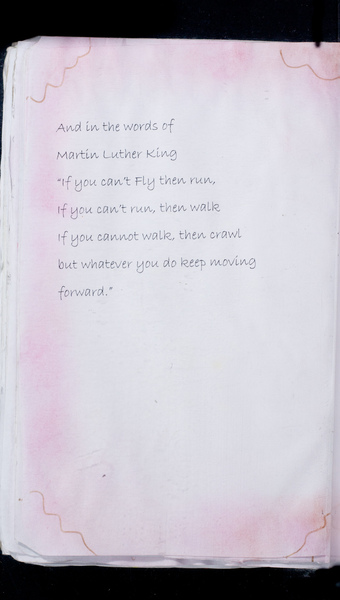 And in the words of
Martin Luther King
"If you can't Fly then run,
If you can't run, then walk
If you cannot walk, then crawl
but whatever you do keep moving
forward."